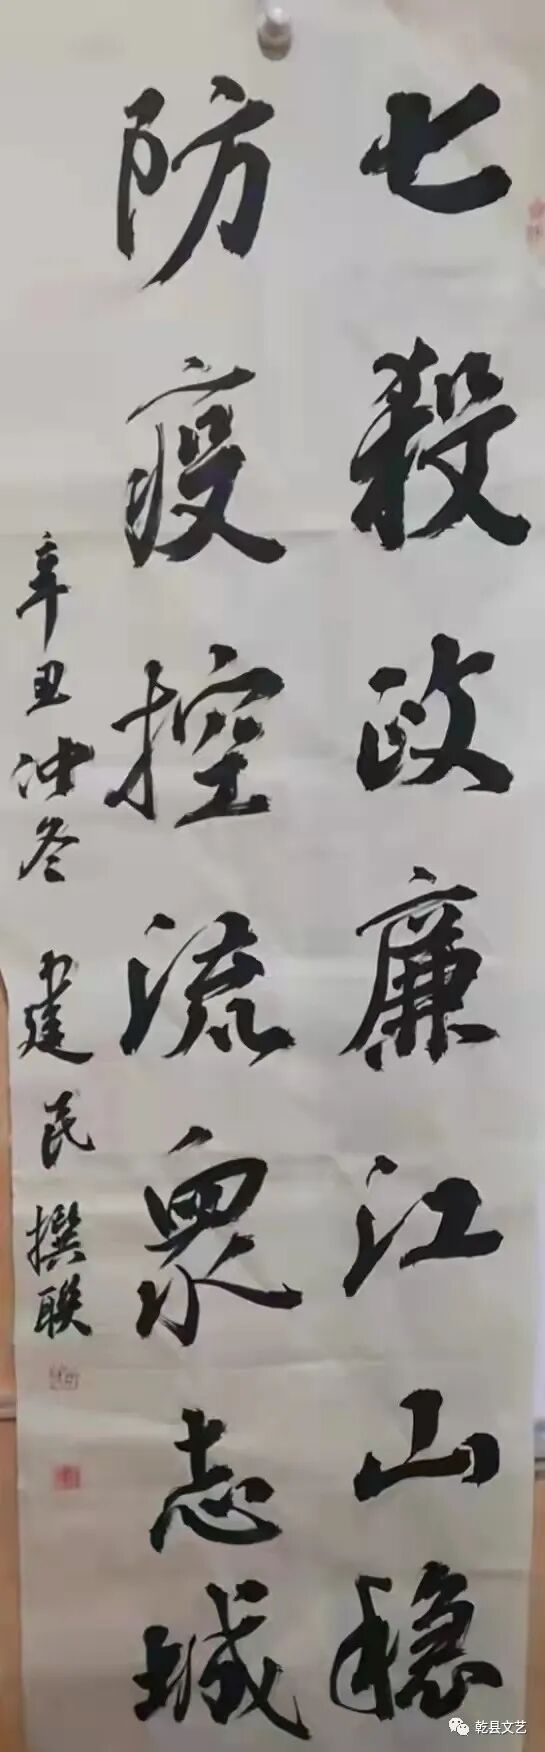 七殺政廉江山穩
防疫控流眾志城
辛丑冲冬 建民撰联
乾县文艺